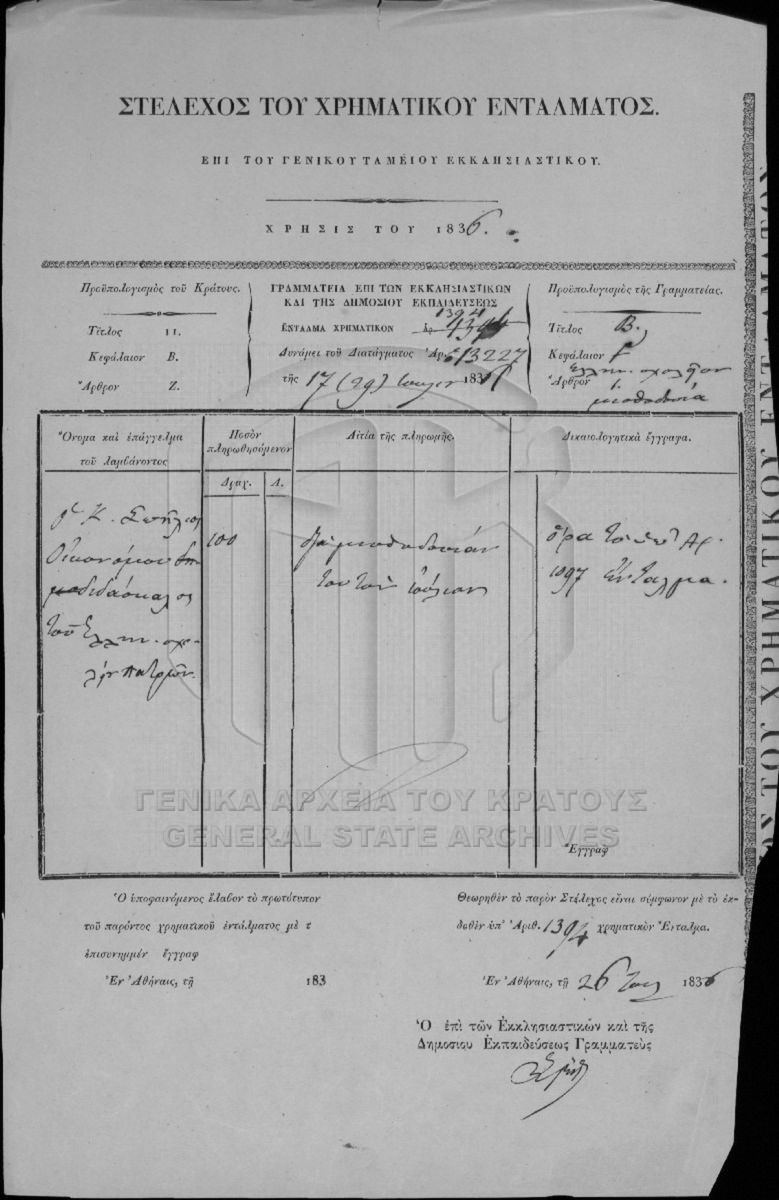 ΣΤΕΛΕΧΟΣ ΤΟΥ ΧΡΗΜΑΤΙΚΟΥ ΕΝΤΑΛΜΑΤΟΣ.
ΕΠΙ ΤΟΥ ΓΕΝΙΚΟΥ ΤΑΜΕΙΟΥ ΕΚΚΛΗΣΙΑΣΤΙΚΟΥ.
ΧΡΗΣΙΣ ΤΟΥ 1836.
Προϋπολογισμὸς τοῦ Κράτους.
Τίτλος ΙΙ.
Κεφάλαιον Β.
Ἄρθρον Ζ.
ΓΡΑΜΜΑΤΕΙΑ ΕΠΙ ΤΩΝ ΕΚΚΛΗΣΙΑΣΤΙΚΩΝ
ΚΑΙ ΤΗΣ ΔΗΜΟΣΙΟΥ ΕΚΠΑΙΔΕΥΣΕΩΣ
1394
ΕΝΤΑΛΜΑ ΧΡΗΜΑΤΙΚΟΝ Ἀρ.
Δυνάμει τοῦ Διατάγματος Ἀρ. 13227
τῆς 17 (29) 1836
Προϋπολογισμὸς τῆς Γραμματείας.
Τίτλος Β.
Κεφάλαιον
Ἑλλην. σχολείων
Ἄρθρον 1.
μισθοδοσία
Ὄνομα καὶ ἐπάγγελμα
τοῦ λαμβάνοντος
Ποσὸν
πληρωθησόμενον
Δραχ. Λ.
Αἰτία τῆς πληρωμῆς.
Δικαιολογητικὰ ἔγγραφα.
Κ.
Οἰκονόμου
διδάσκαλος
τοῦ Ἑλλην. σχο-
Πατρῶν.
100
διὰ μισθοδοσίαν
του τὸν ἰούλιον
ὅρα τὸ Ἀρ.
1097 ἔνταλμα.
ΓΕΝΙΚΑ ΑΡΧΕΙΑ ΤΟΥ ΚΡΑΤΟΥΣ
GENERAL STATE ARCHIVES
Ἔγγραφ
Ὁ ὑποφαινόμενος ἔλαβον τὸ πρωτότυπον
τοῦ παρόντος χρηματικοῦ ἐντάλματος μὲ τ
ἐπισυνημμέν ἔγγραφ
Ἐν Ἀθήναις, τῇ 183
Θεωρηθὲν τὸ παρὸν Στέλεχος εἶναι σύμφωνον μὲ τὸ ἐκ-
δοθὲν ὑπ' Ἀριθ. 1394 χρηματικὸν Ἔνταλμα.
Ἐν Ἀθήναις, τῇ 26 1836
Ὁ ἐπὶ τῶν Ἐκκλησιαστικῶν καὶ τῆς
Δημοσίου Ἐκπαιδεύσεως Γραμματεὺς
ΤΟΥ ΧΡΗΜΑΤΙΚΟΥ ΕΝΤΑΛΜΑΤΟΣ